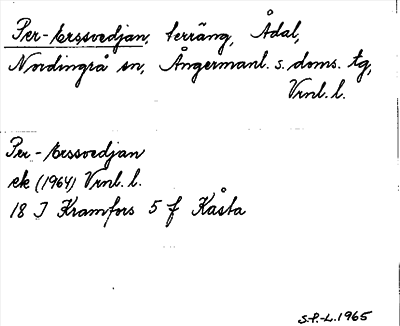 Per-Erssvedjan, terräng, Ådal,
Nordingrå sn, Ångermanl. s. doms. tg,
Vrnl. l.
Per-Erssvedjan
ek (1964) Vrnl. l.
18 I Kramfors 5 f Kåsta
S.P.-L. 1965